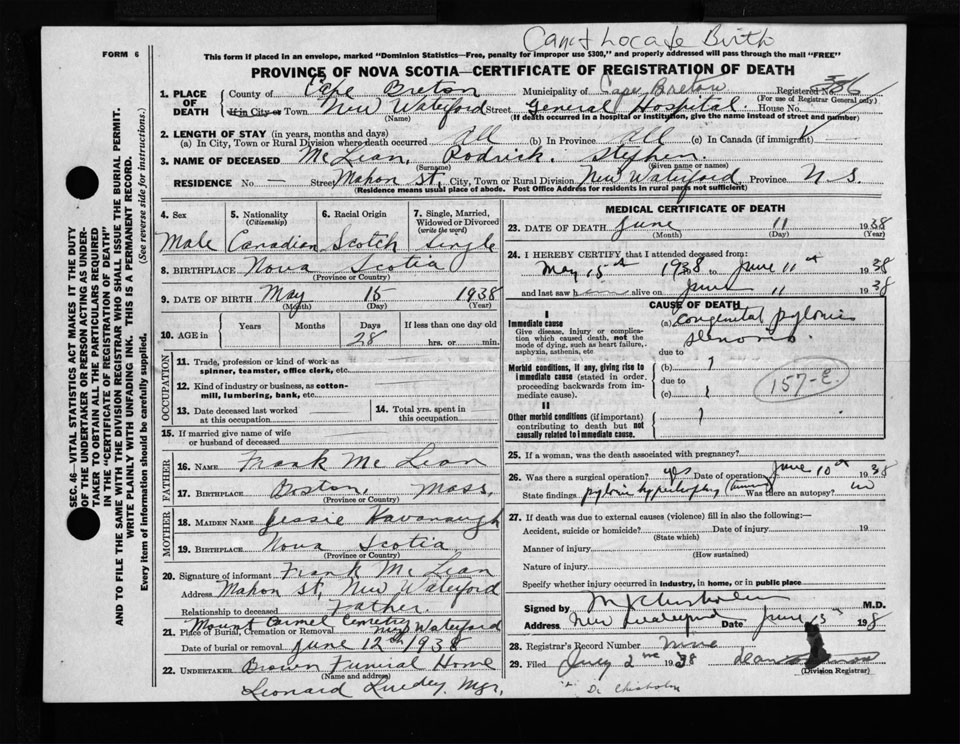 Can't Locate Birth
FORM 6
This form if placed in an envelope, marked "Dominion Statistics—Free, penalty for improper use $300," and properly addressed will pass through the mail "FREE"
PROVINCE OF NOVA SCOTIA—CERTIFICATE OF REGISTRATION OF DEATH
1. PLACE OF DEATH
County of Cape Breton Municipality of Cape Breton Registered No. 386
(For use of Registrar General only)
If in City or Town New Waterford Street General Hospital House No.
(Name) (If death occurred in a hospital or institution, give the name instead of street and number)
2. LENGTH OF STAY (in years, months and days)
(a) In City, Town or Rural Division where death occurred All (b) In Province All (c) In Canada (if immigrant)
3. NAME OF DECEASED McLean, Rodrick. Stephen.
(Surname) (Given name or names)
RESIDENCE No. — Street Mahon St, City, Town or Rural Division New Waterford, Province N.S.
(Residence means usual place of abode. Post Office Address for residents in rural parts not sufficient)
4. Sex Male
5. Nationality (Citizenship) Canadian
6. Racial Origin Scotch
7. Single, Married, Widowed or Divorced (write the word) Single
8. BIRTHPLACE Nova Scotia
(Province or Country)
9. DATE OF BIRTH May 15 1938
(Month) (Day) (Year)
10. AGE in Years Months Days 28 If less than one day old hrs. or min.
OCCUPATION
11. Trade, profession or kind of work as spinner, teamster, office clerk, etc.
12. Kind of industry or business, as cotton-mill, lumbering, bank, etc.
13. Date deceased last worked at this occupation
14. Total yrs. spent in this occupation
15. If married give name of wife or husband of deceased
FATHER
16. NAME Frank McLean
17. BIRTHPLACE Boston, Mass.
(Province or Country)
MOTHER
18. MAIDEN NAME Jessie Kavanaugh
19. BIRTHPLACE Nova Scotia
(Province or Country)
20. Signature of informant Frank McLean
Address Mahon St, New Waterford
Relationship to deceased Father.
Mount Carmel Cemetery
21. Place of Burial, Cremation or Removal New Waterford
Date of burial or removal June 12th 1938
22. UNDERTAKER Brown Funeral Home
(Name and address)
Leonard Mgr.
MEDICAL CERTIFICATE OF DEATH
23. DATE OF DEATH June 11 1938
(Month) (Day) (Year)
24. I HEREBY CERTIFY that I attended deceased from:
May 15th 1938 to June 11th 1938
and last saw h alive on June 11 1938
CAUSE OF DEATH
I
Immediate cause (a) Congenital pyloric stenosis
Give disease, injury or complication which caused death, not the mode of dying, such as heart failure, asphyxia, asthenia, etc
due to
Morbid conditions, if any, giving rise to immediate cause (stated in order proceeding backwards from immediate cause).
(b)
due to
(c)
157-E
II
Other morbid conditions (if important) contributing to death but not causally related to immediate cause.
25. If a woman, was the death associated with pregnancy?
26. Was there a surgical operation? yes Date of operation June 10th 1938
State findings pyloric hypertrophy (tumor) Was there an autopsy? no
27. If death was due to external causes (violence) fill in also the following:—
Accident, suicide or homicide? Date of injury 19
(State which)
Manner of injury
(How sustained)
Nature of injury
Specify whether injury occurred in industry, in home, or in public place
Signed by Chisholm M.D.
Address New Waterford Date June 15 1938
28. Registrar's Record Number
29. Filed July 2nd 1938
(Division Registrar)
Dr Chisholm
SEC. 46—VITAL STATISTICS ACT MAKES IT THE DUTY
OF THE UNDERTAKER OR PERSON ACTING AS UNDERTAKER TO OBTAIN ALL THE PARTICULARS REQUIRED
IN THE "CERTIFICATE OF REGISTRATION OF DEATH"
AND TO FILE THE SAME WITH THE DIVISION REGISTRAR WHO SHALL ISSUE THE BURIAL PERMIT.
WRITE PLAINLY WITH UNFADING INK. THIS IS A PERMANENT RECORD.
Every item of information should be carefully supplied. (See reverse side for instructions.)